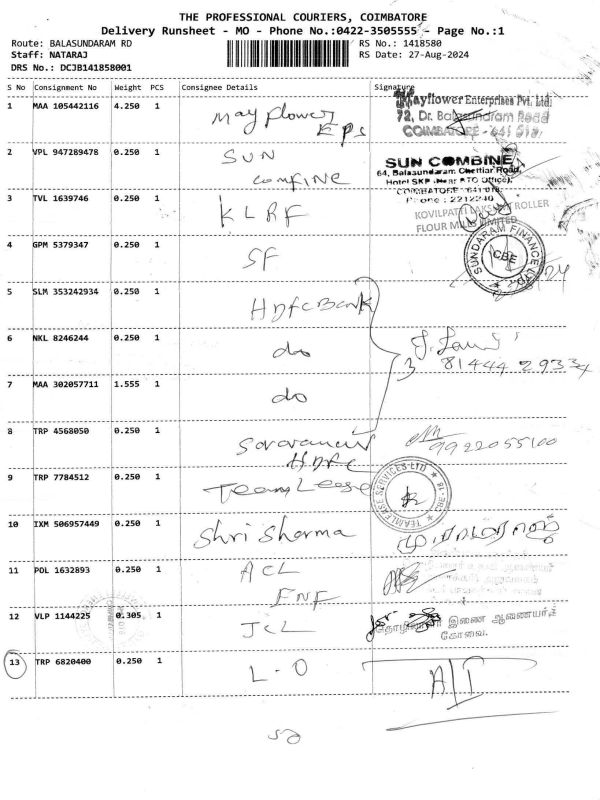 THE PROFESSIONAL COURIERS, COIMBATORE
Delivery Runsheet - MO - Phone No.:0422-3505555 - Page No.:1
Route: BALASUNDARAM RD
RS No.: 1418580
Staff: NATARAJ
RS Date: 27-Aug-2024
DRS No.: DCJB141858001
S No Consignment No Weight PCS Consignee Details Signature
1 MAA 105442116 4.250 1 Mayflower
EPS
Mayflower Enterprises Pvt. Ltd
72, Dr. Balasundram Road
COIMBATORE - 641 018.
2 VPL 947289478 0.250 1 SUN
COMFINE
SUN COMBINE
64, Balasundaram Chettiar Road,
Hotel SKP (Near RTO Office),
COIMBATORE - 641 018.
Phone : 2212240
3 TVL 1639746 0.250 1 KLRF
KOVILPATTI LAKSHMI ROLLER
FLOUR MILLS LIMITED
4 GPM 5379347 0.250 1 SF
SUNDARAM FINANCE LTD.
CBE
5 SLM 353242934 0.250 1 HDFC Bank
6 NKL 8246244 0.250 1 do
3 81444 29334
7 MAA 302057711 1.555 1 do
8 TRP 4568050 0.250 1 Saravanan
HDFC
9922055100
9 TRP 7784512 0.250 1 TeamLease
TEAMLEASE SERVICES LTD
CBE-18
10 IXM 506957449 0.250 1 Shri Sharma
11 POL 1632893 0.250 1 ACL
FNF
12 VLP 1144225 0.305 1 JCL
தொழிலாளர் இணை ஆணையர்
கோவை.
13 TRP 6820400 0.250 1 L-O